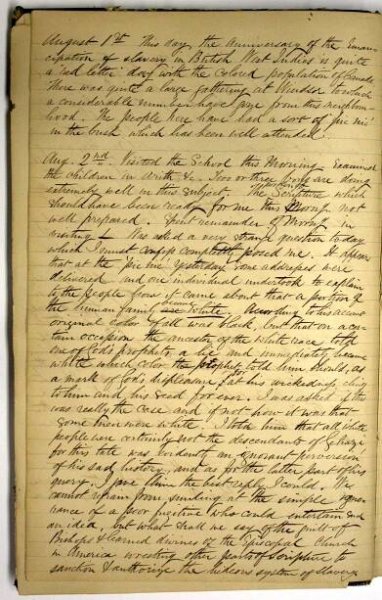 August 1st This day the Anniversary of the Eman-
cipation of slavery in British West Indies is quite
a red letter day with the Colored population of Canada
There was quite a large gathering at Windsor to which
a considerable number have gone from this neighbour-
hood. The people here have had a sort of "pic nic"
in the bush which has been well attended.
Aug. 2nd Visited the School this Morning. Examined
the children in Arith &c. Two or three boys are doing
extremely well in this subject. The Scripture which
should have been ready for me this Morng. not
well prepared. Spent remainder of Morng in
writing. Was asked a very strange question today
which I must confess completely posed me. It appears
that at the 'pic nic' yesterday some addresses were
delivered and one individual undertook to explain
to the people how it came about that a portion of
the human family became white. According to his account
original color of all was black, but that on a cer-
tain occasion the ancestor of the white race told
one of God's prophets a lie and immediately became
white which color the prophet told him should, as
a mark of God's displeasure for his wickedness cling
to him and his seed for ever. I was asked if this
was really the case and if not how it was that
some men were white. I told him that all white
people were certainly not the descendants of Gehazi
for this tale was evidently an ignorant perversion
of his sad history, and as for the latter part of his
query. I gave him the best reply I could. We
cannot refrain from smiling at the simple igno-
rance of a poor fugitive who could entertain such
an idea, but what shall we say of the guilt of
Bishops & learned divines of the Episcopal Church
in America wresting other parts of Scripture to
sanction & authorize the hideous system of Slavery